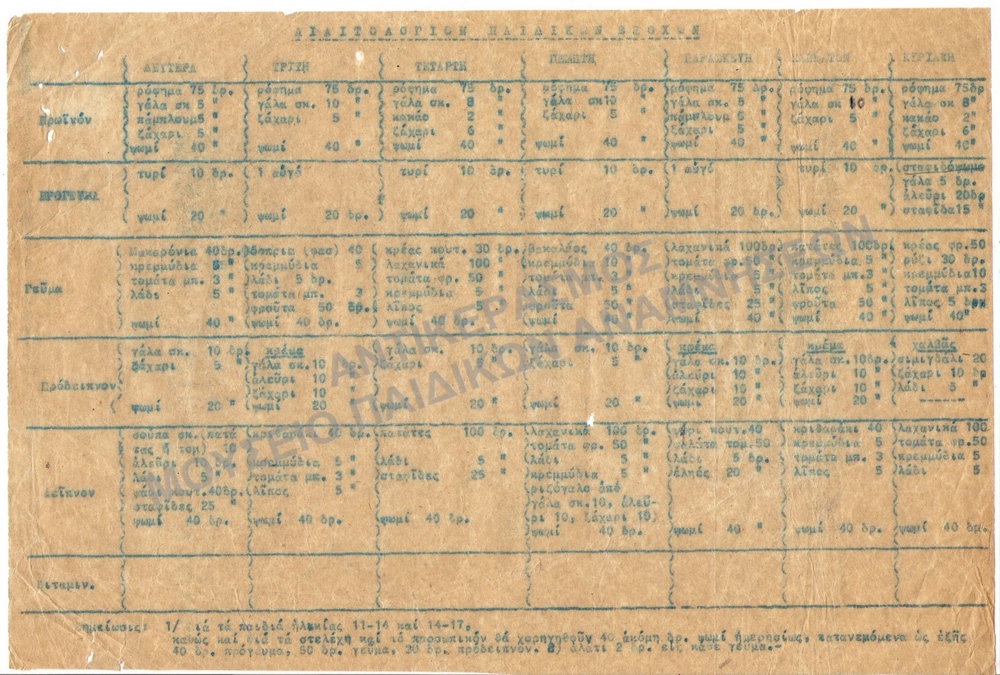 ΔΙΑΙΤΟΛΟΓΙΟΝ ΠΑΙΔΙΚΩΝ ΕΞΟΧΩΝ
ΔΕΥΤΕΡΑ ΤΡΙΤΗ ΤΕΤΑΡΤΗ ΠΕΜΠΤΗ ΠΑΡΑΣΚΕΥΗ ΚΥΡΙΑΚΗ
Πρωϊνόν
ρόφημα 75 δρ. ρόφημα 75 δρ. ρόφημα 75 δρ. ρόφημα 75 δρ. ρόφημα 75 δρ. ρόφημα 75 δρ. ρόφημα 75δρ
γάλα σκ 5 " γάλα σκ. 10 " γάλα σκ. 8 " γάλα σκ10 " γάλα σκ. 5 " γάλα σκ 10 " γάλα σκ 8"
πάμπλουμ5 " ζάχαρι 5 " κακάο 2 " ζάχαρι 5 " πάμπλουμ 5 " ζάχαρι 5 " κακάο 2"
ζάχαρι 5 " ζάχαρι 6 " ζάχαρι 5 " ζάχαρι 6"
ψωμί 40 " ψωμί 40 " ψωμί 40 " ψωμί 40 " ψωμί 40 " ψωμί 40 " ψωμί 40"
ΠΡΟΓΕΥΜΑ
τυρί 10 δρ. 1 αὐγό τυρί 10 δρ. τυρί 10 δρ. 1 αὐγό τυρί 10 δρ. σταφιδόψωμο
γάλα 5 δρ.
ἀλεύρι 20δρ
ψωμί 20 " ψωμί 20 δρ. ψωμί 20 " ψωμί 20 " ψωμί 20 δρ. ψωμί 20 δρ. σταφίδα15 "
Γεῦμα
Μακαρόνια 40δρ. ὄσπρια (φας) 40 κρέας κουτ. 30 δρ. βακαλάος 40 δρ. λαχανικά 100δρ πατάτες 100δρ κρέας φρ.50
κρεμμύδια 5 " κρεμμύδια 5 λαχανικά 100 " κρεμμύδια 10 " τομάτα φρ. 50 " κρεμμύδια 5 " ρύζι 30 δρ.
τομάτα μπ. 3 " λάδι 5 δρ. τομάτα φρ. 50 " τομάτα μπ. 3 " κρεμμύδια 5 " τομάτα μπ. 3 " κρεμμύδια10
λάδι 5 " τομάτα μπ. 3 κρεμμύδια 5 " λάδι 5 " λάδι 5 " λῖπος 5 " τομάτα μπ.3
φροῦτα 50 δρ. λῖπος 5 " φροῦτα 50 " σταφίδες 25 " φροῦτα 50 " λῖπος 5 δρ.
ψωμί 40 " ψωμί 40 δρ. ψωμί 40 δρ. ψωμί 40 " ψωμί 40 " ψωμί 40 " ψωμί 40"
Πρόδειπνον
γάλα σκ. 10 δρ. κρέμα γάλα σκ. 10 δρ. γάλα σκ. 10 δρ. κρέμα κρέμα χαλβᾶς
ζάχαρι 5 " γάλα σκ. 10 ζάχαρι 5 " ζάχαρι 5 " γάλα σκ. 10 δρ. γάλα σκ. 10δρ. σιμιγδάλι 20
ἀλεύρι 10 " ἀλεύρι 10 " ἀλεύρι 10 " ζάχαρι 10 δρ
ζάχαρι 10 ζάχαρι 10 " ζάχαρι 10 " λάδι 5 "
ψωμί 20 " ψωμί 20 ψωμί 20 " ψωμί 20 " ψωμί 20 " ψωμί 20 " ------
Δεῖπνον
σοῦπα σκ. (πατά κριθαράκι 40 δρ. πατάτες 100 δρ. λαχανικά 100 δρ. ψάρι κουτ.40 κριθαράκι 40 λαχανικά 100
τας ἤ τομ) τομάτα φρ. 50 " σαλάτα τομ.50 κρεμμύδια 5 τομάτα φρ.50
ἀλεύρι δρ. κρεμμύδια 5 " λάδι 5 " λάδι 5 " λάδι 5 δρ. τομάτα μπ. 3 κρεμμύδια 5
λάδι 5 " τομάτα μπ. 3 " σταφίδες 25 " κρεμμύδια 5 " ἐληές 20 " λῖπος 5 λάδι 5
ψάρι κουτ.40δρ. λῖπος 5 " ρυζόγαλο ἀπό
σταφίδες 25 " γάλα σκ.10, ἀλεύ-
ψωμί 40 δρ. ψωμί 40 δρ. ψωμί 40 δρ. ρι 10, ζάχαρι 10)
ψωμί 40 δρ. ψωμί 40 " ψωμί 40 δρ. ψωμί 40 δρ.
Βιταμιν.
Σημείωσις: 1/ Διά τά παιδιά ἡλικίας 11-14 καί 14-17,
καθώς καί διά τά στελέχη καί τό προσωπικόν θά χορηγηθοῦν 40 ἀκόμη δρ. ψωμί ἡμερησίως, κατανεμόμενα ὡς ἑξῆς
40 δρ. πρόγευμα, 50 δρ. γεῦμα, 30 δρ. πρόδειπνον. 2) ἁλάτι 2 δρ. εἰς κάθε γεῦμα.-
ΑΝΤΙΚΕΡΑΤΜΟΣ
ΜΟΥΣΕΙΟ ΠΑΙΔΙΚΩΝ ΑΝΑΜΝΗΣΕΩΝ